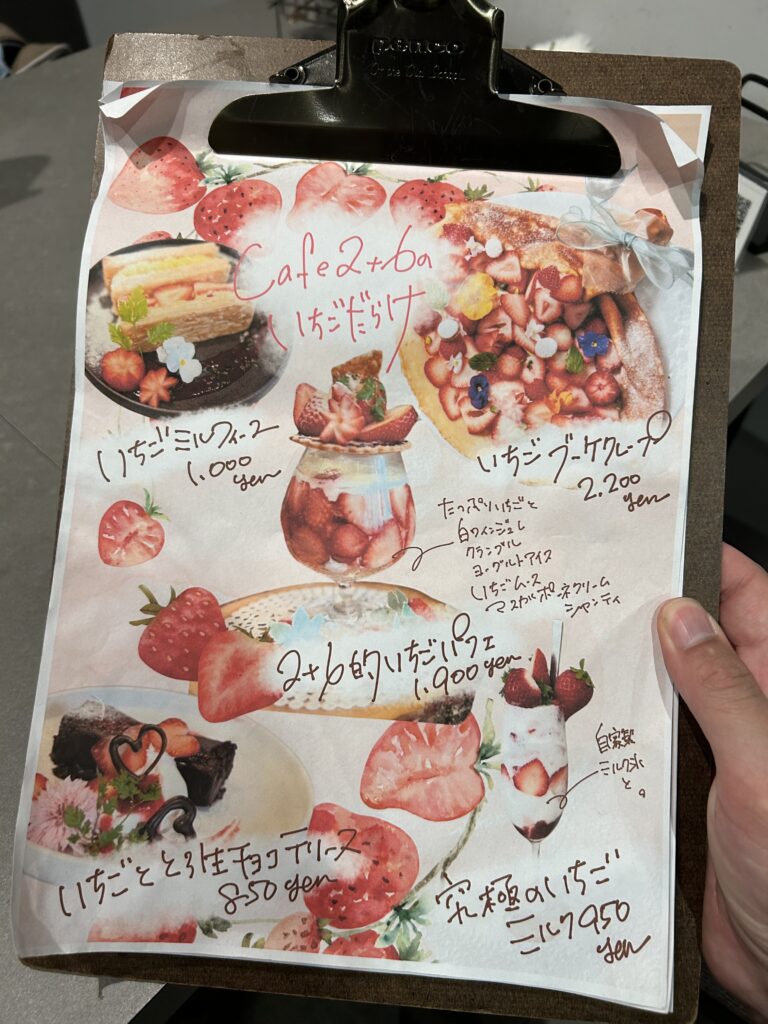 penco
Cafe2+6の
いちごだらけ
いちごミルフィーユ
1.000
yen
いちごブーケクレープ
2.200
yen
たっぷりいちごと
白ワインジュレ
クランブル
ヨーグルトアイス
いちごムース
マスカルポーネクリーム
シャンティ
2+6的いちごパフェ
1.900yen
自家製
ミルク氷
と。
いちごととろ生チョコテリーヌ
850yen
究極のいちご
ミルク950
yen